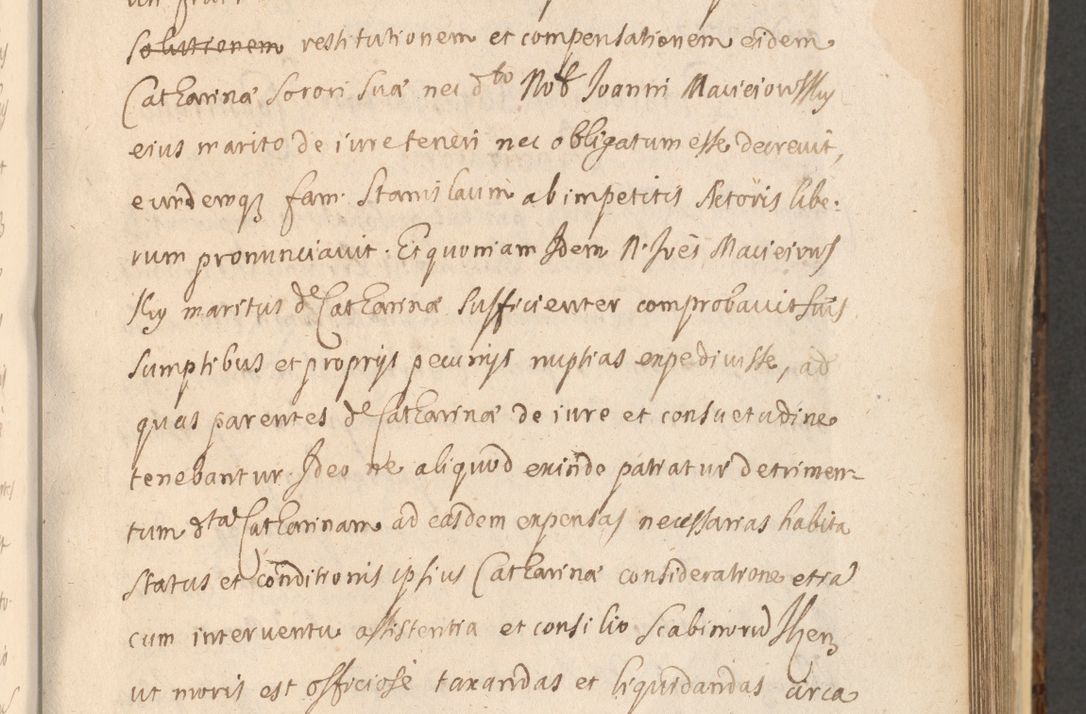 solutionem restitutionem et compensationem eidem
Catharinæ Sorori Suæ nec dto Nob Joanni Macieiowsky
eius marito de iure teneri nec obligatum esse decrevit,
eundemq3 fam: Stanislaum ab impetitis Actoris libe:
rum pronunciavit. Et quoniam Idem N. Joes Macieiows
Ky maritus de Catharinæ Sufficienter comprobavit suis
sumptibus et proprijs pecunijs nuptias expedivisse, ad
quas parentes de Catharinæ de iure et consuetudine
tenebantur. Ideo ne aliquod exindo patiatur detrimen=
tum dtae Catharinam ad easdem expensas necessarias habita
status et conditionis ipsius Catharinæ consideratione
cum interventu assistentia et consilio Scabinorū
ut moris est officiose taxandas et liquidandas circa